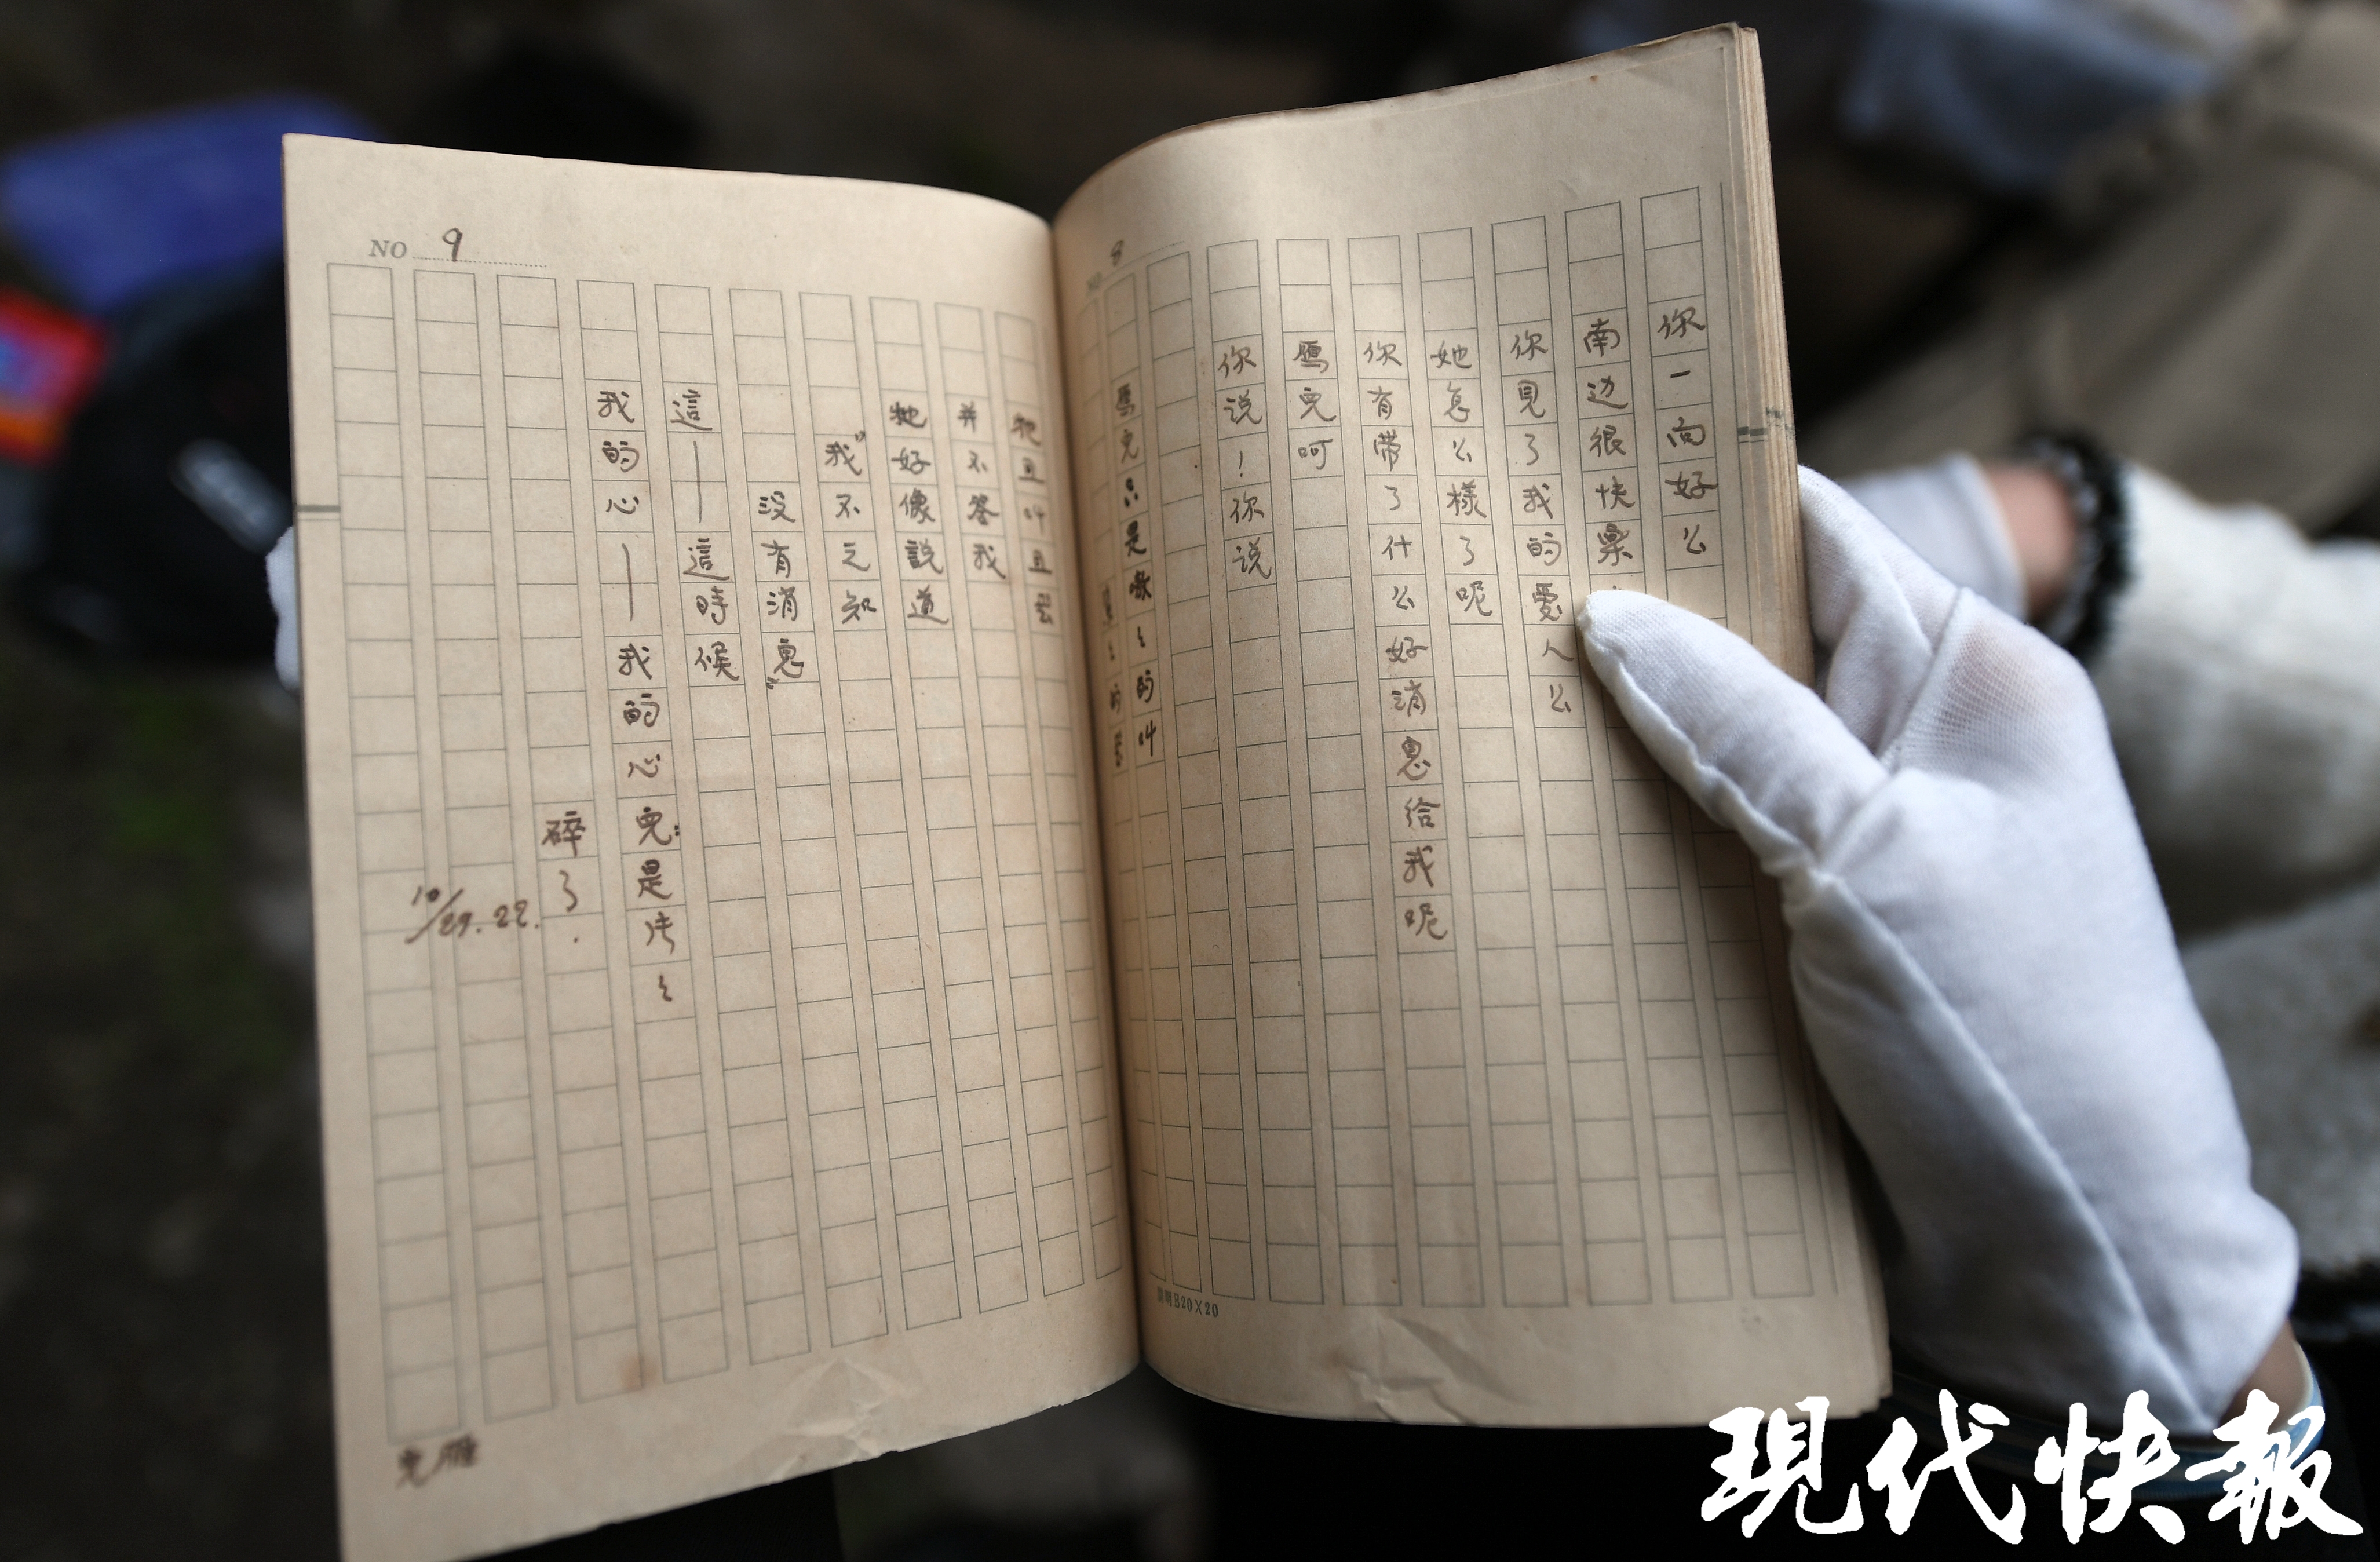 8
你一向好么
南边很快樂
你見了我的愛人么
她怎么樣了呢
你有带了什么好消息给我呢
鴈兒呵
你说！你说
鴈兒只是噭々的叫
B20×20
NO 9
牠且叫且
并不答我
牠好像説道
“我不之知
没有消息”
這——這時候
我的心——我的心兒：是片々
碎了.
10/29.22.
兒雁
現代快報